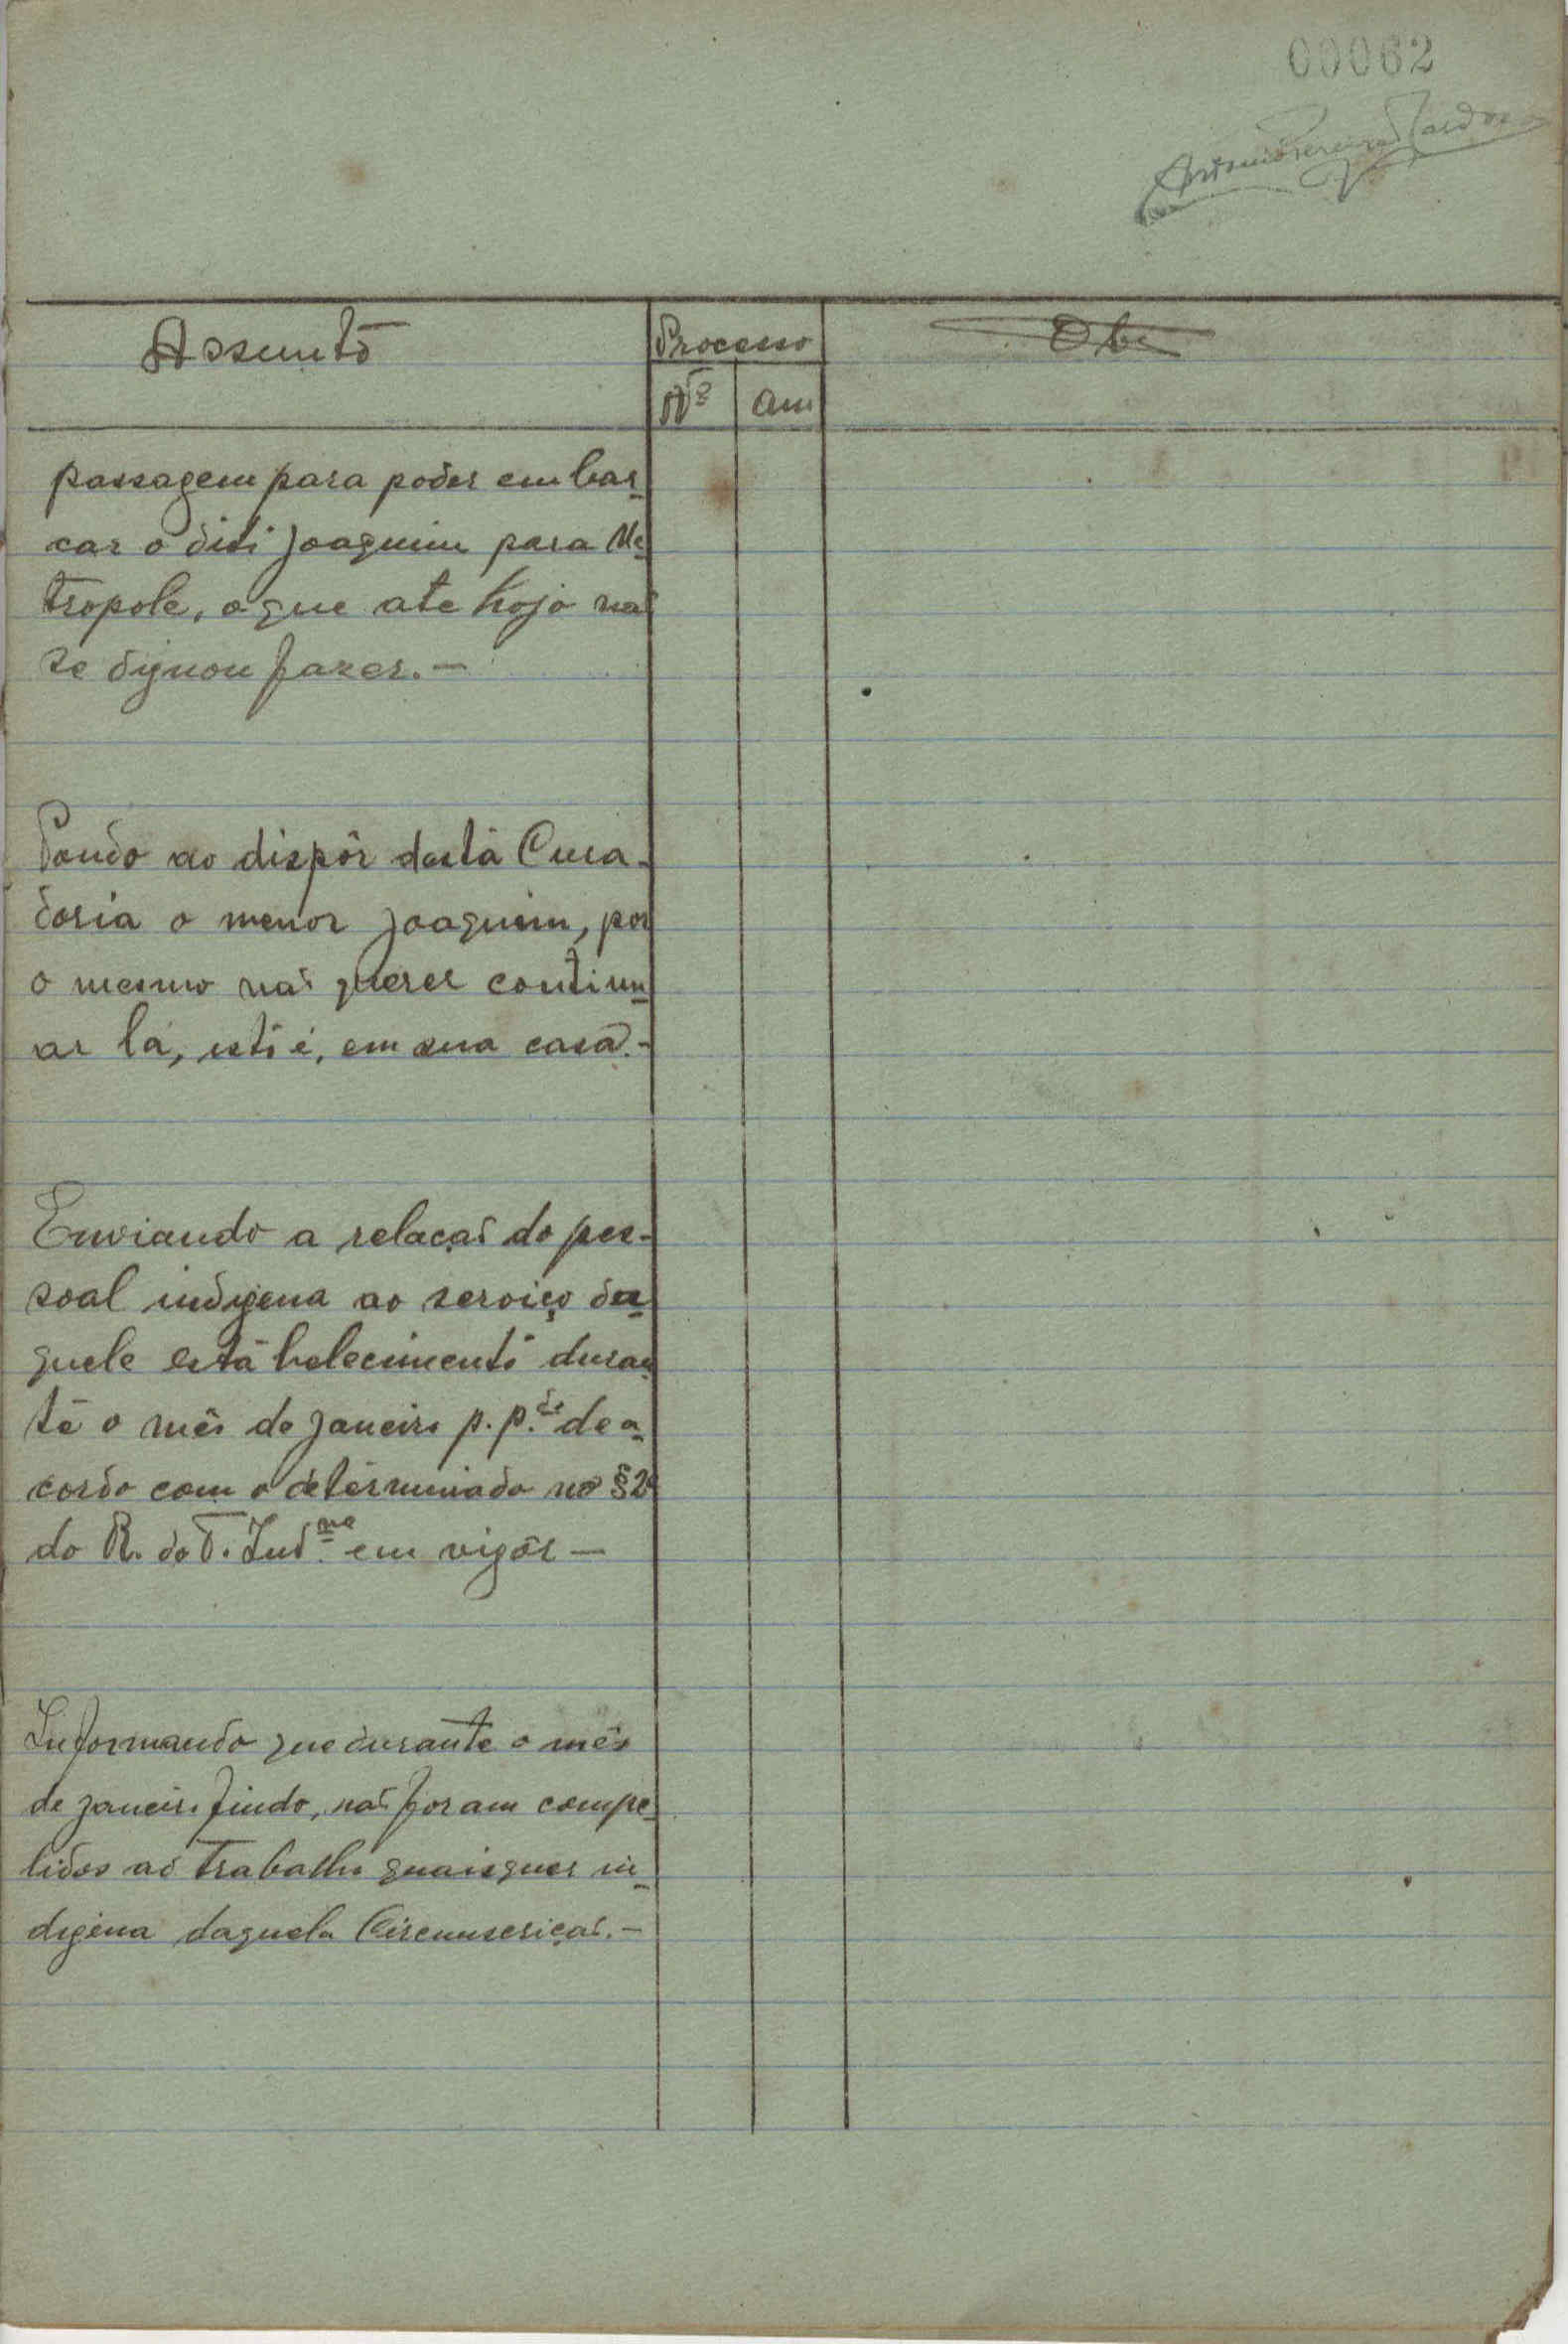 00062
Antonio Pereira Cardoso
Assunto
Processo
Obs
Nº
Ano
passagem para poder embar-
car o dito Joaquim para Me-
tropole, o que ate hoje não
se dignou fazer. —
Pondo ao dispôr desta Cura-
doria o menor Joaquim, por
o mesmo não querer continu-
ar lá, isto é, em sua casa. -
Enviando a relação do pes-
soal indigena ao serviço da-
quele estabelecimento duran-
te o mês de Janeiro p. p.do de a-
cordo com o determinado no § 2º
do R. do T. Ind.na em vigôr —
Informando que durante o mês
de Janeiro findo, não foram compe-
lidos ao trabalho quaisquer in-
digena daquela Circunscrição. —